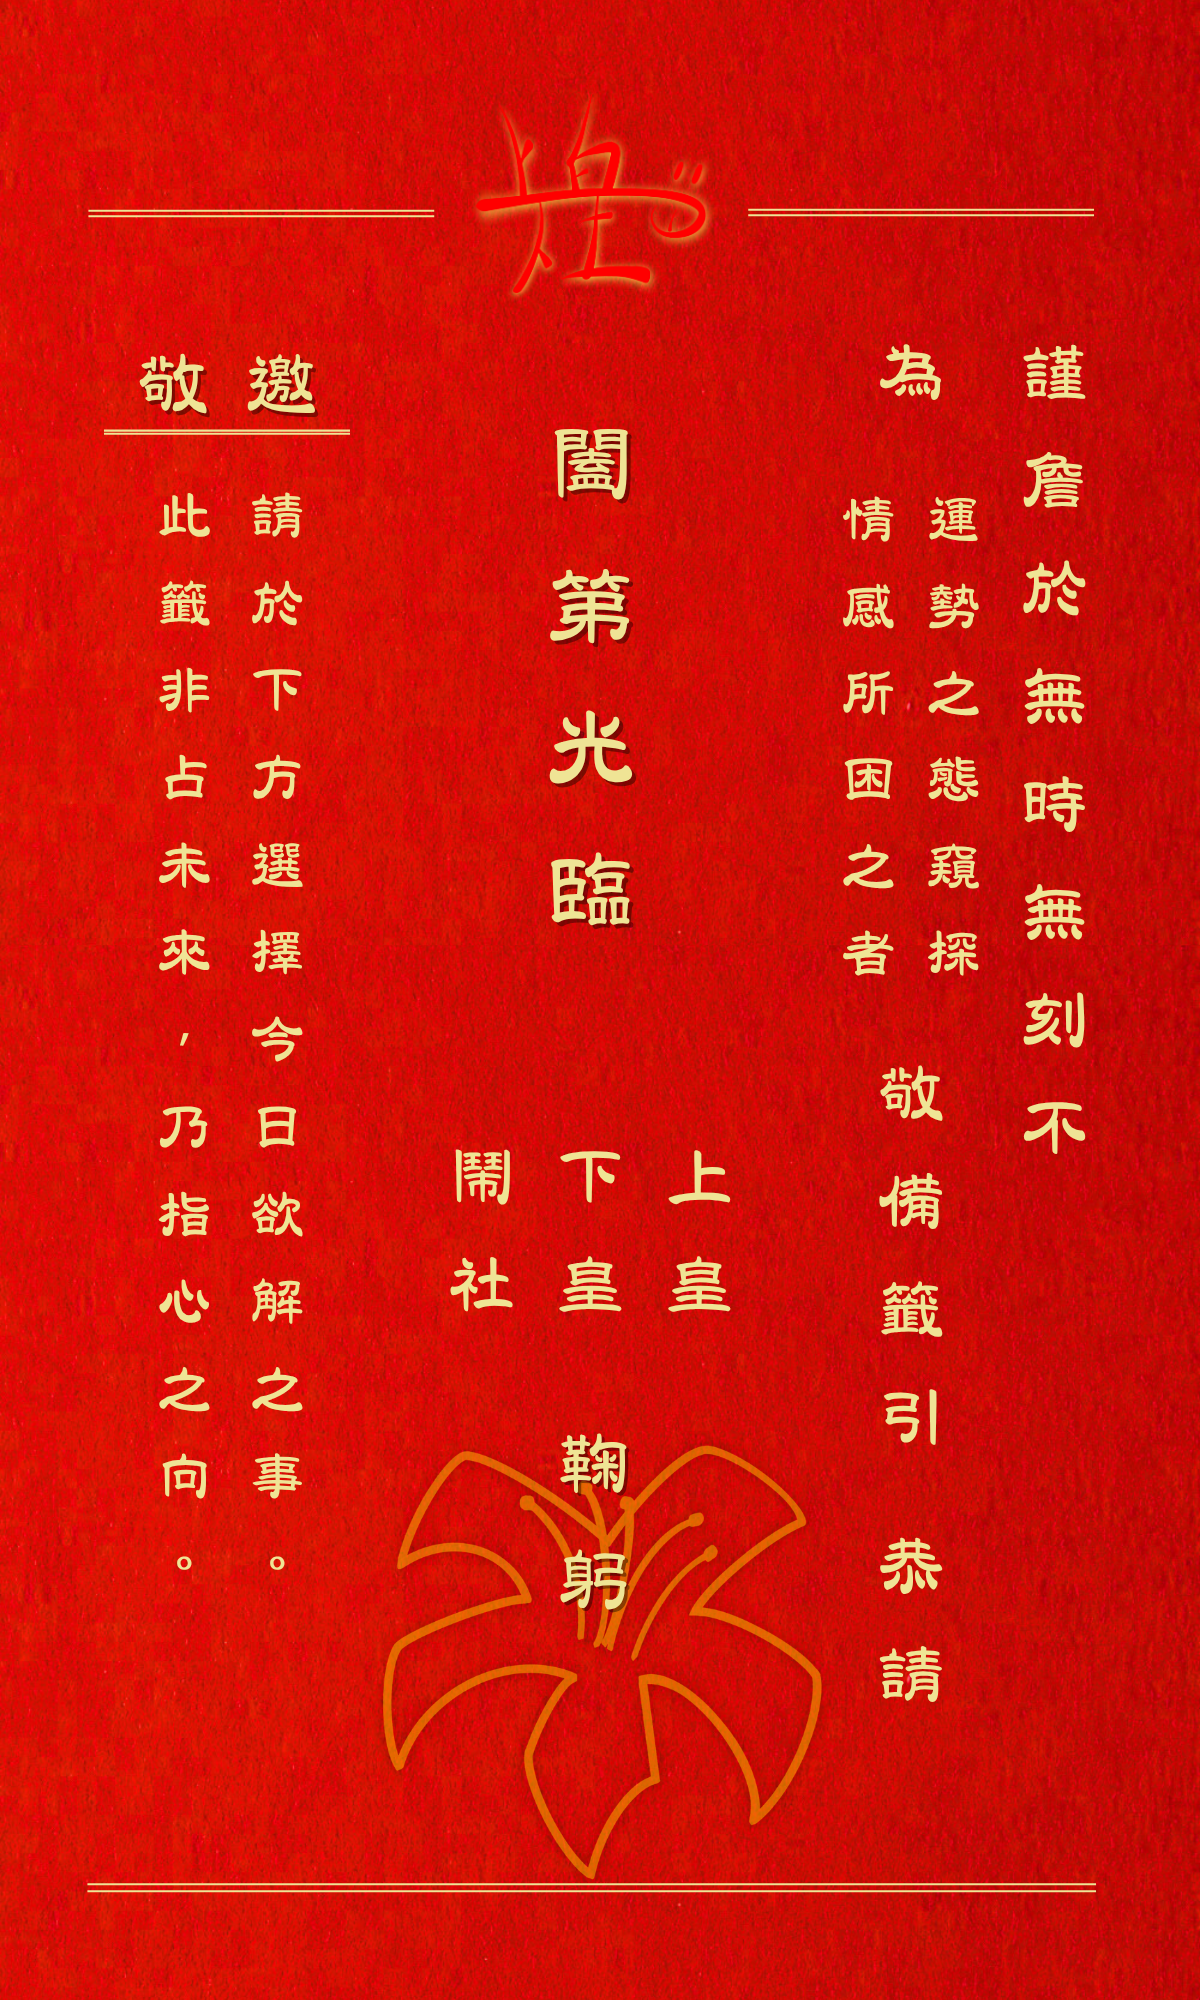 謹詹於無時無刻不
為
運勢之態窺探
情感所困之者
敬備籤引
恭請
闔第光臨
上皇
下皇
鬧社
鞠躬
邀敬
請於下方選擇今日欲解之事。
此籤非占未來，乃指心之向。